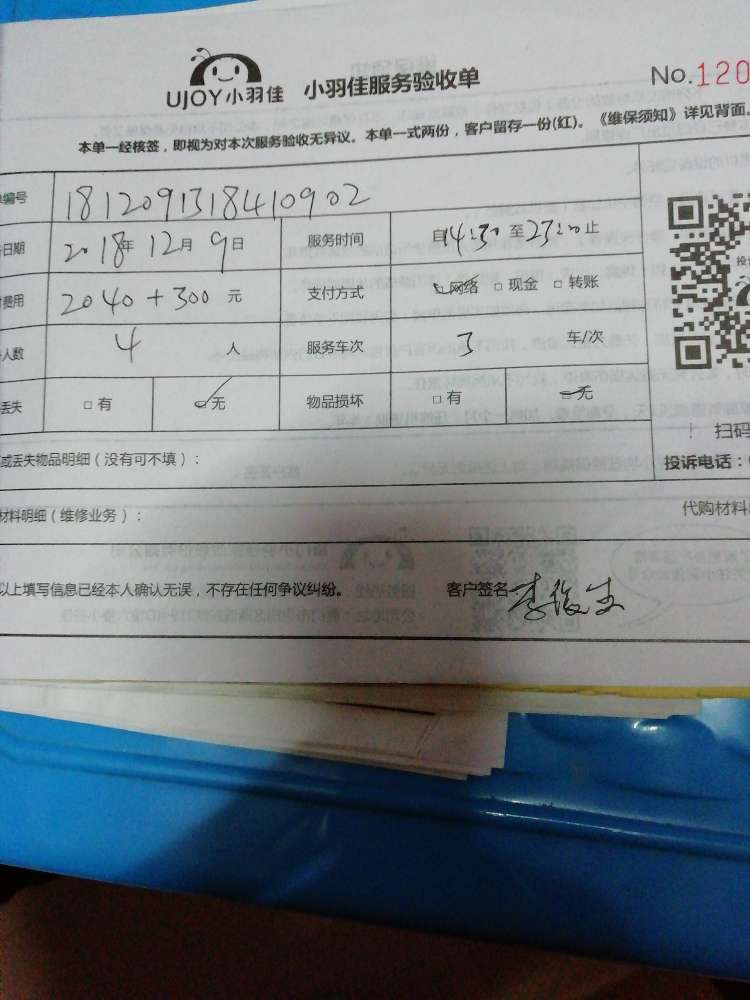 UJOY小羽佳 小羽佳服务验收单 No.120
本单一经核签，即视为对本次服务验收无异议。本单一式两份，客户留存一份(红)。《维保须知》详见背面。
编号 1812091318410902
日期 2018年12月9日 服务时间 自14:30至23:20止
费用 2040+300元 支付方式 网络 □现金 □转账
人数 4人 服务车次 3 车/次
丢失 □有 □无 物品损坏 □有 □无
! 扫码
或丢失物品明细（没有可不填）：
投诉电话：
材料明细（维修业务）：
代购材料
以上填写信息已经本人确认无误，不存在任何争议纠纷。 客户签名 李俊生